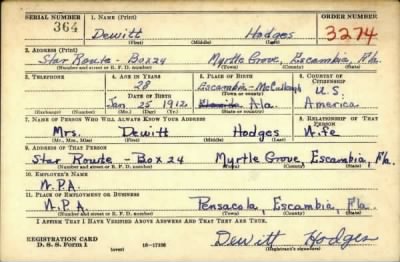 SERIAL NUMBER 1. NAME (Print) ORDER NUMBER
364 Dewitt Hodges 3274
(First) (Middle) (Last)
2. ADDRESS (Print)
Star Route - Box 24 Myrtle Grove, Escambia, Fla.
(Number and street or R. F. D. number) (Town) (County) (State)
3. TELEPHONE 4. AGE IN YEARS 5. PLACE OF BIRTH 6. COUNTRY OF CITIZENSHIP
28 Escambia - McCullough U.S.
DATE OF BIRTH (Town or county)
Jan 25 1912 Ala. America
(Exchange) (Number) (Mo.) (Day) (Yr.) (State or country)
7. NAME OF PERSON WHO WILL ALWAYS KNOW YOUR ADDRESS 8. RELATIONSHIP OF THAT PERSON
Mrs. Dewitt Hodges Wife
(Mr., Mrs., Miss) (First) (Middle) (Last)
9. ADDRESS OF THAT PERSON
Star Route - Box 24 Myrtle Grove, Escambia, Fla.
(Number and street or R. F. D. number) (Town) (County) (State)
10. EMPLOYER'S NAME
W.P.A.
11. PLACE OF EMPLOYMENT OR BUSINESS
W.P.A. Pensacola, Escambia, Fla.
(Number and street or R. F. D. number) (Town) (County) (State)
I AFFIRM THAT I HAVE VERIFIED ABOVE ANSWERS AND THAT THEY ARE TRUE.
REGISTRATION CARD Dewitt Hodges
D. S. S. Form 1 (over) 16-17105 (Registrant's signature)